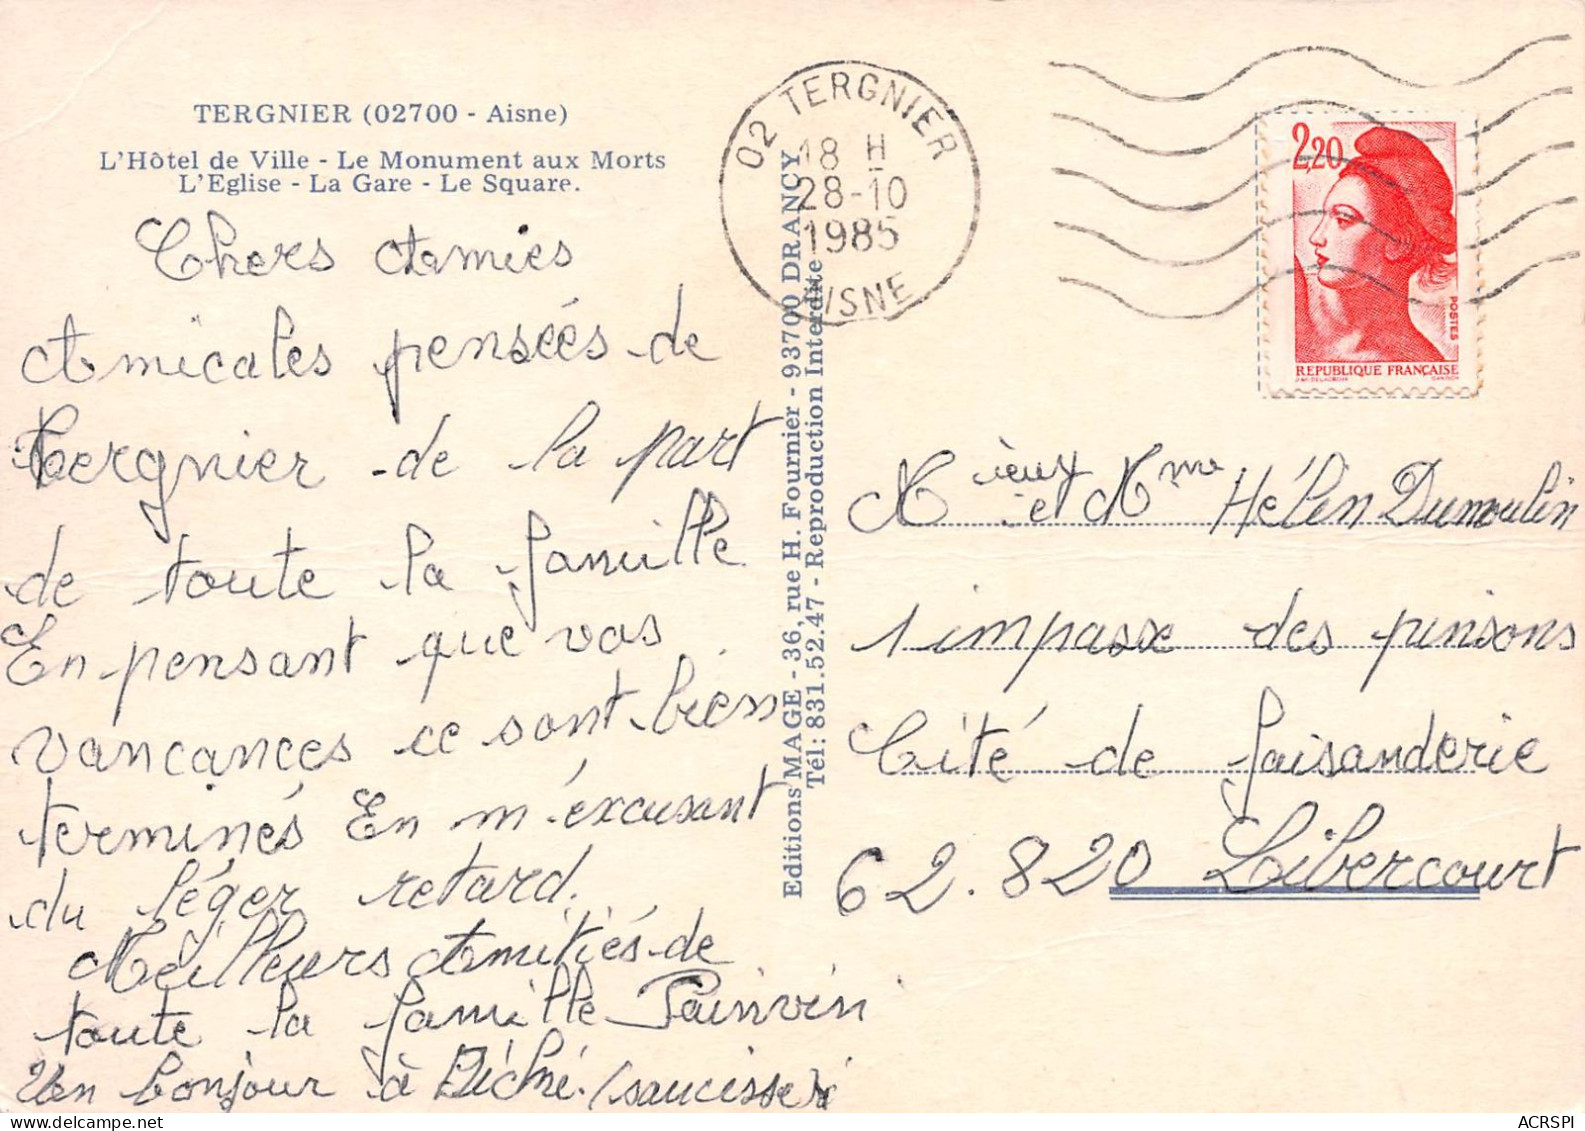 TERGNIER (02700 - Aisne)
L'Hôtel de Ville - Le Monument aux Morts
L'Eglise - La Gare - Le Square.
Chers Amies
Amicales pensées de
Tergnier de la part
de toute la famille
En pensant que vos
vancances ce sont bien
terminés En m'éxcusant
du léger retard.
Meilleurs Amitiés de
toute la famille Painvin
Un bonjour à (saucisse
Editions MAGE - 36, rue H. Fournier - 93700 DRANCY
Tél : 831.52.47 - Reproduction Interdite
02 TERGNIER
18 H
28-10
1985
AISNE
2,20
POSTES
REPUBLIQUE FRANÇAISE
Mieux et Mme Hélèn Dumoulin
1 impasse des pinsons
Cité de faisanderie
62.820 Libercourt
ACRSPI